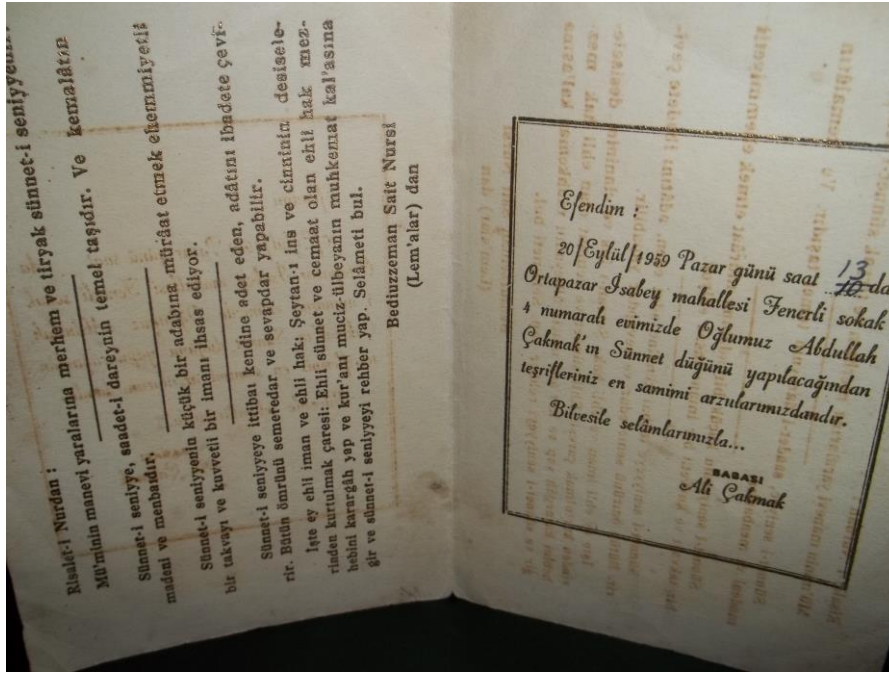 Risalet-i Nurdan :
Mü'minin manevi yaralarına merhem ve tiryak sünnet-i seniyyedir.
Sünnet-i seniyye, saadet-i dareynin temel taşıdır. Ve kemalâtın
madeni ve menbaıdır.
Sünnet-i seniyyenin küçük bir adabına mürâat etmek ehemmiyetli
bir takvayı ve kuvvetli bir imanı ihsas ediyor.
Sünnet-i seniyyeye ittibaı kendine adet eden, adâtını ibadete çevi-
rir. Bütün ömrünü semeredar ve sevapdar yapabilir.
İşte ey ehli iman ve ehli hak: Şeytan-ı ins ve cinninin desisele-
rinden kurtulmak çaresi: Ehli sünnet ve cemaat olan ehli hak mez-
hebini karargâh yap ve kur'anı muciz-ülbeyanın muhkemat kal'asına
gir ve sünnet-i seniyyeyi rehber yap. Selâmeti bul.
Bediuzzeman Sait Nursi
(Lem'alar) dan
Efendim :
20/Eylül/1959 Pazar günü saat 13 10 da
Ortapazar İsabey mahallesi Fenerli sokak
4 numaralı evimizde Oğlumuz Abdullah
Çakmak'ın Sünnet düğünü yapılacağından
teşrifleriniz en samimi arzularımızdandır.
Bilvesile selâmlarımızla...
BABASI
Ali Çakmak